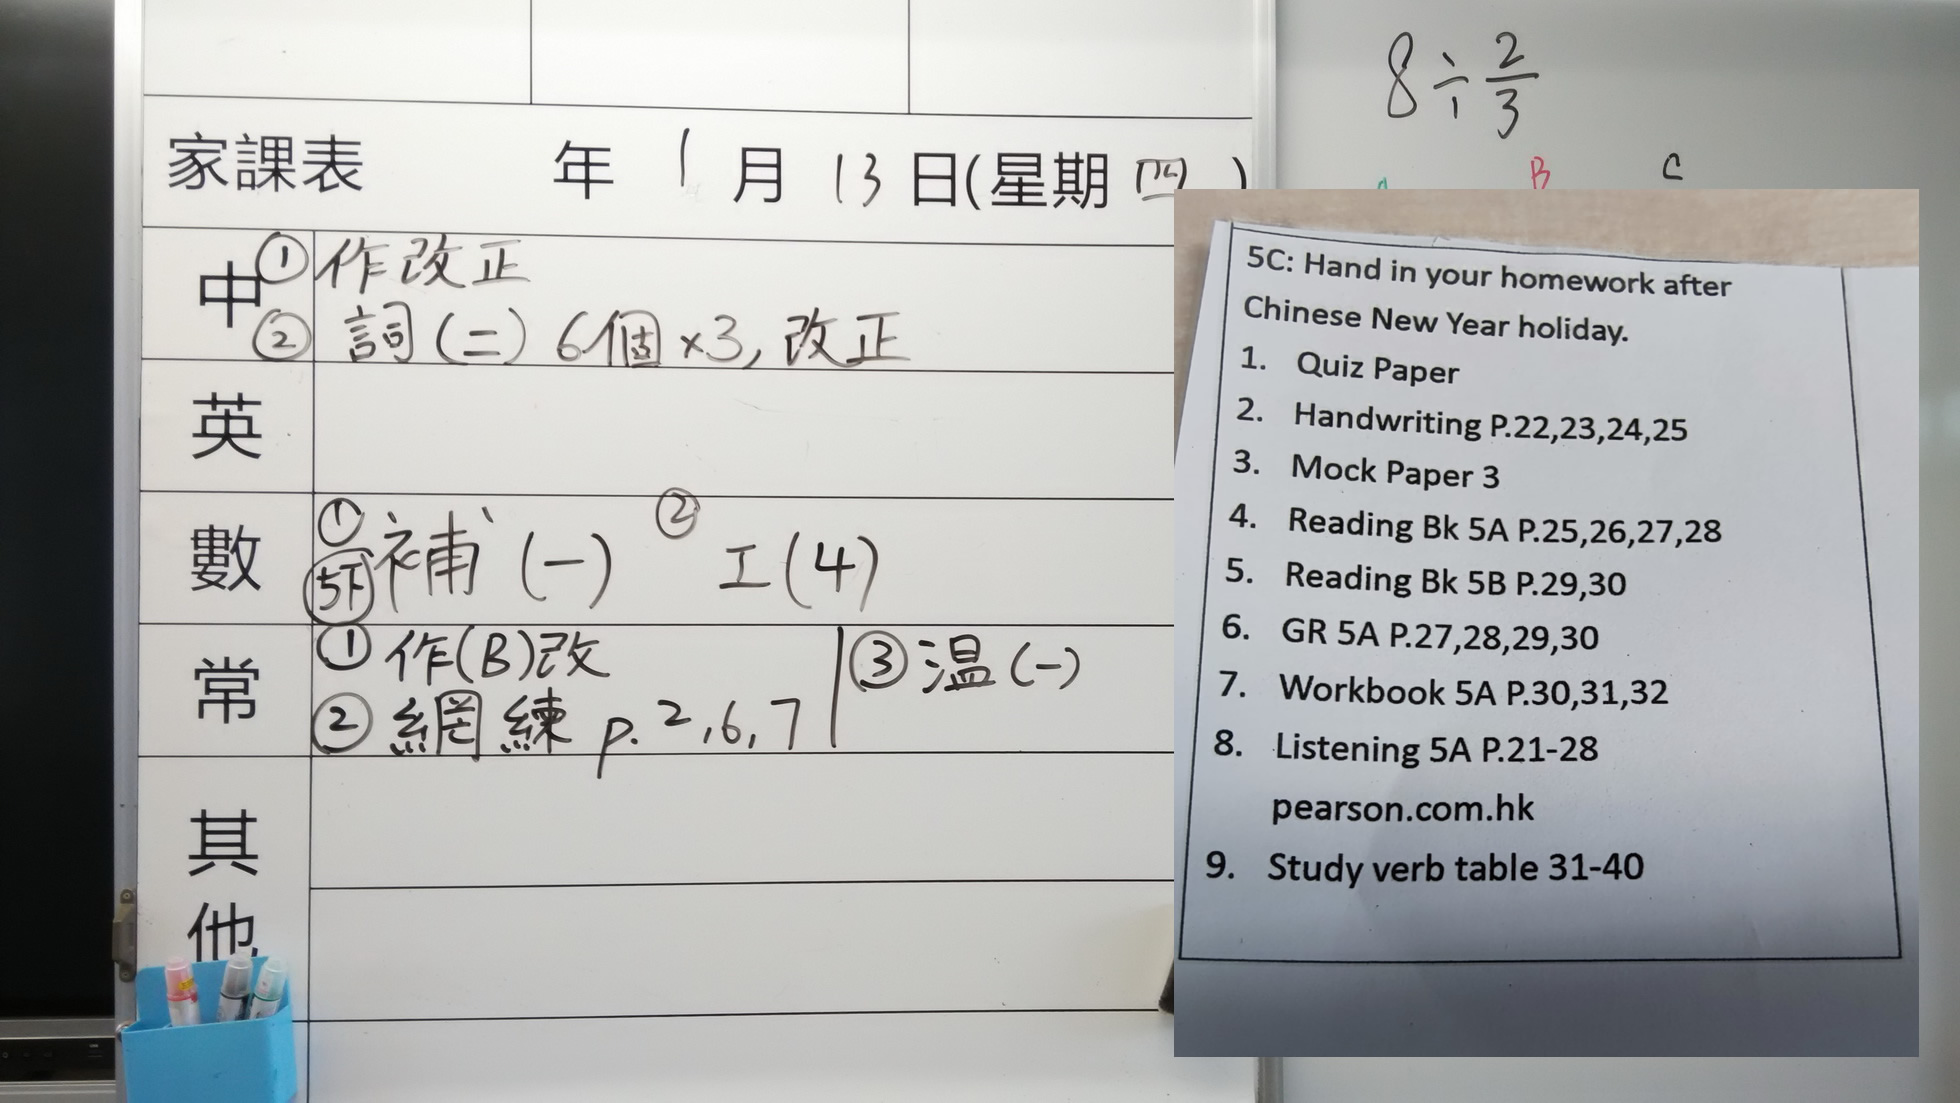 家課表 年 1 月 13 日(星期 四)
中 ① 作改正
② 詞(二) 6個×3, 改正
英
數 ① 5F 補(一) ② 工(4)
常 ① 作(B)改 ③ 溫(一)
② 網練 p. 2, 6, 7
其他
8÷2/3
B C
5C: Hand in your homework after
Chinese New Year holiday.
1. Quiz Paper
2. Handwriting P.22,23,24,25
3. Mock Paper 3
4. Reading Bk 5A P.25,26,27,28
5. Reading Bk 5B P.29,30
6. GR 5A P.27,28,29,30
7. Workbook 5A P.30,31,32
8. Listening 5A P.21-28
pearson.com.hk
9. Study verb table 31-40